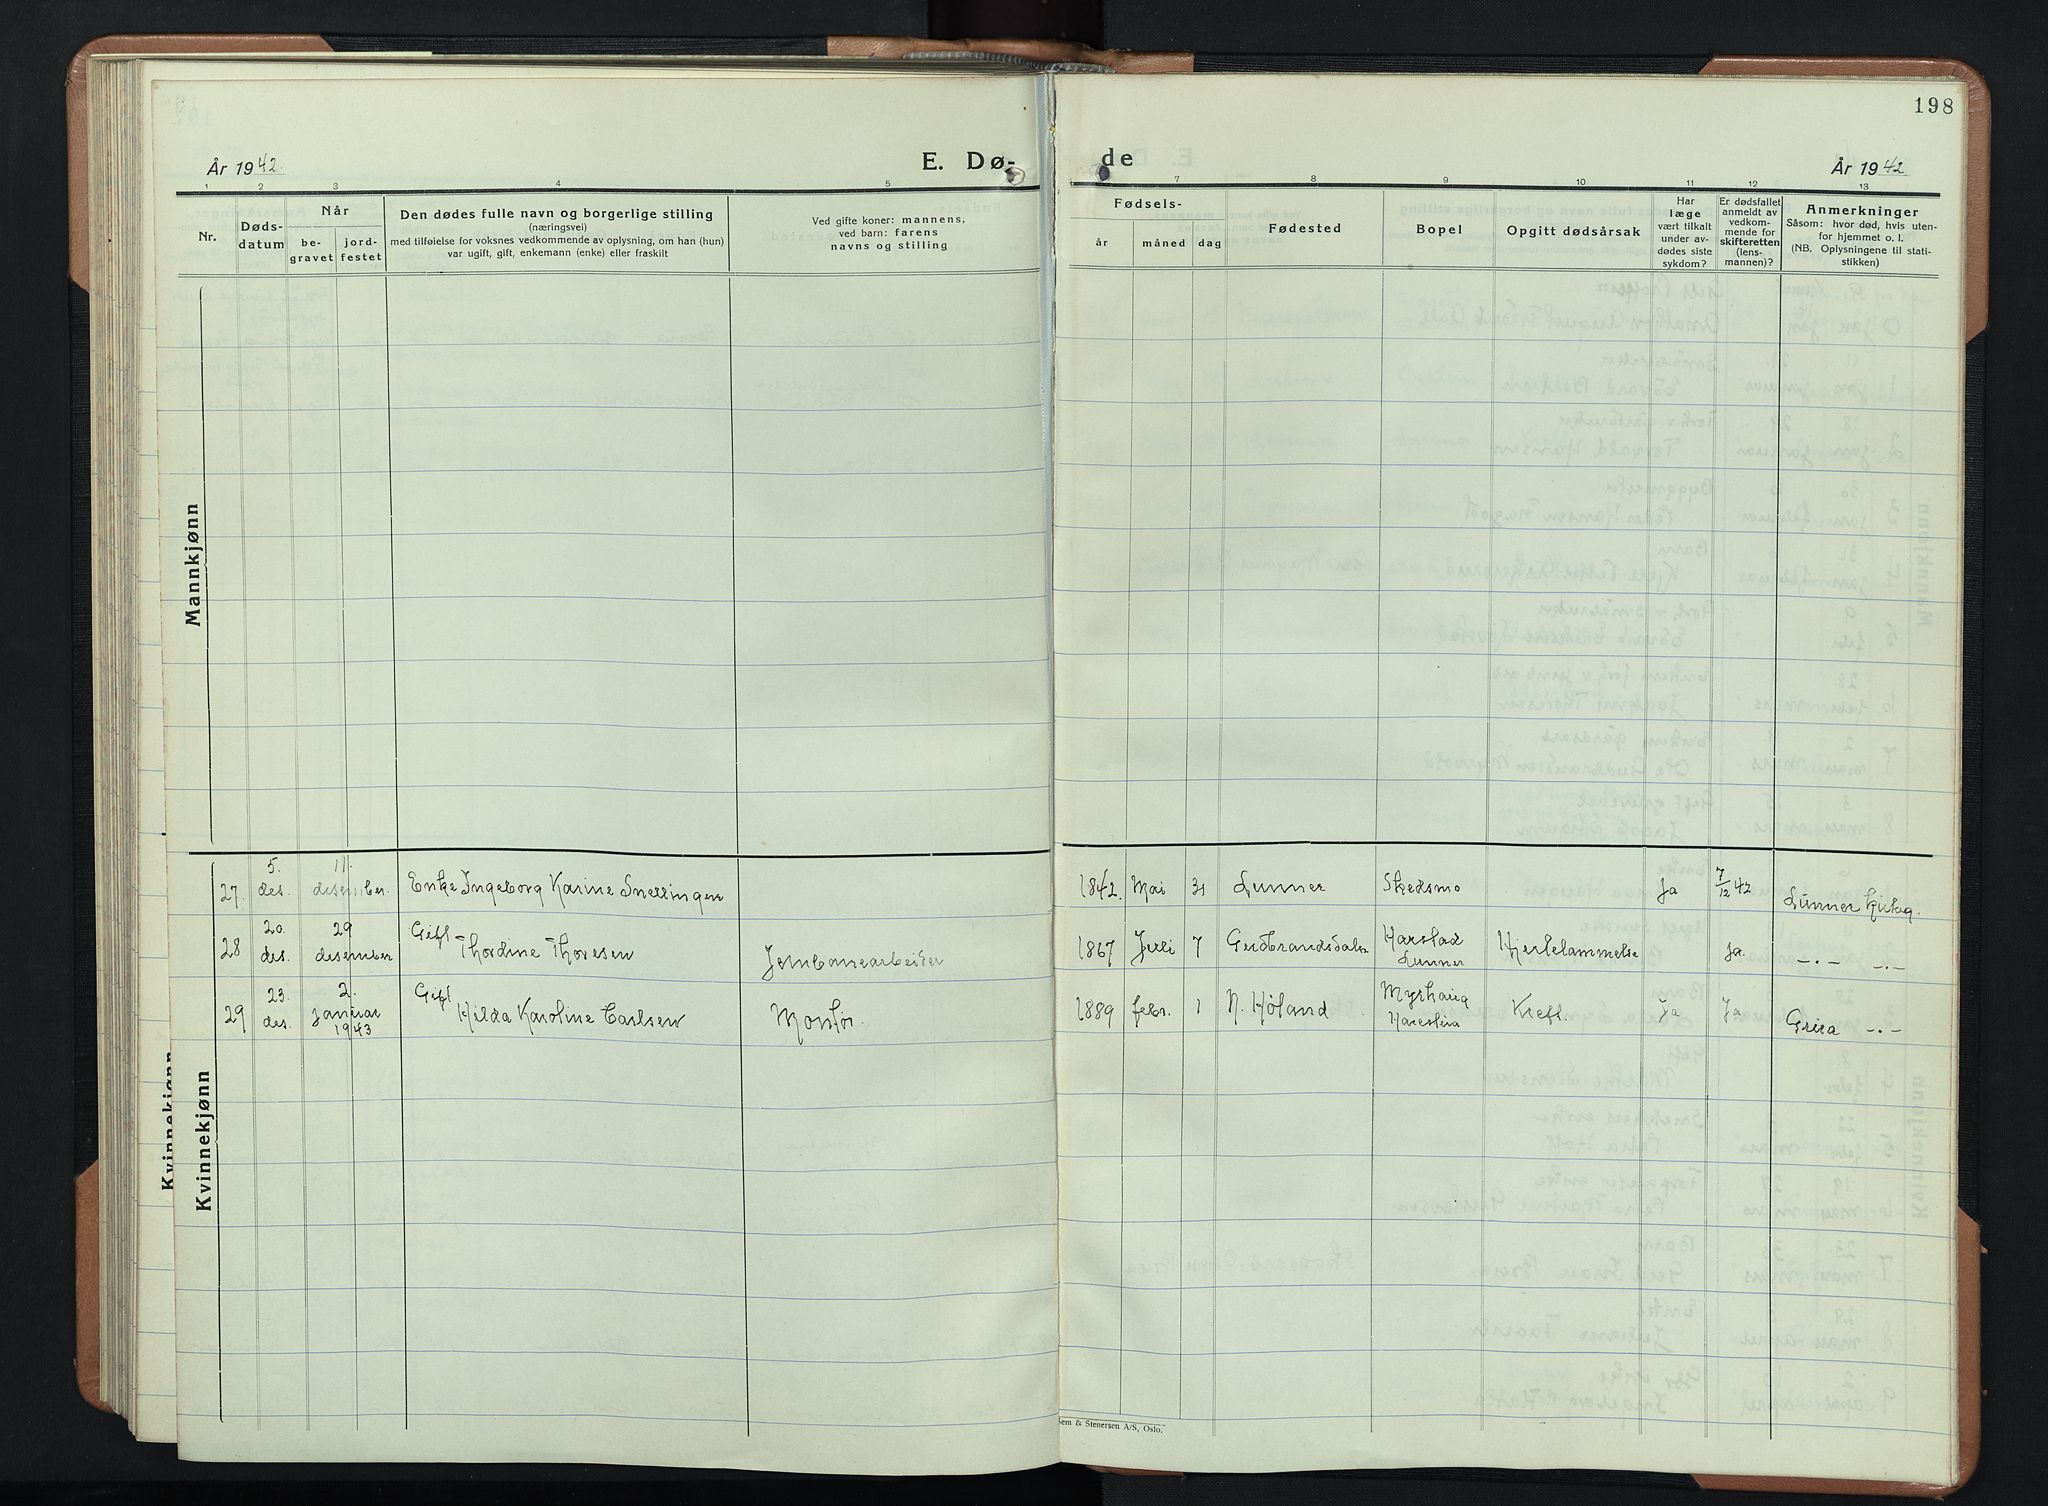 198
År 1942.
E. Dø-
de
År 1942.
1 2 3 4 5
7 8 9 10 11 12 13
Nr.
Døds-
datum
Når
be-
gravet
jord-
festet
Den dødes fulle navn og borgerlige stilling
(næringsvei)
med tilføielse for voksnes vedkommende av oplysning, om han (hun)
var ugift, gift, enkemann (enke) eller fraskilt
Ved gifte koner: mannens,
ved barn: farens
navns og stilling
Fødsels-
år måned dag
Fødested
Bopel
Opgitt dødsårsak
Har
læge
vært tilkalt
under av-
dødes siste
sykdom?
Er dødsfallet
anmeldt av
vedkom-
mende for
skifteretten
(lens-
mannen)?
Anmerkninger
Såsom: hvor død, hvis uten-
for hjemmet o. l.
(NB. Oplysningene til stati-
stikken)
Mannkjønn
Kvinnekjønn
Kvinnekjønn
5. 11.
27. des. desember. Enke Ingeborg Karine Snellingen 1842. Mai 31 Lunner Skedsmo Ja 7/12 42 Lunner Kirkeg.
20. 29 Gift Harstad
28 des. desember Thordine Thoresen Jernbanearbeider 1867 Juli 7 Gudbrandsdalen Lunner Hjertelammelse Ja. —.— —.—
23. 2. Gift Myrhaug
29 des. januar Hilda Karoline Carlsen Montør. 1889 febr. 1 N. Høland Harestua Kreft. Ja Ja Grua —.—
1943
Sem & Stenersen A/S, Oslo.